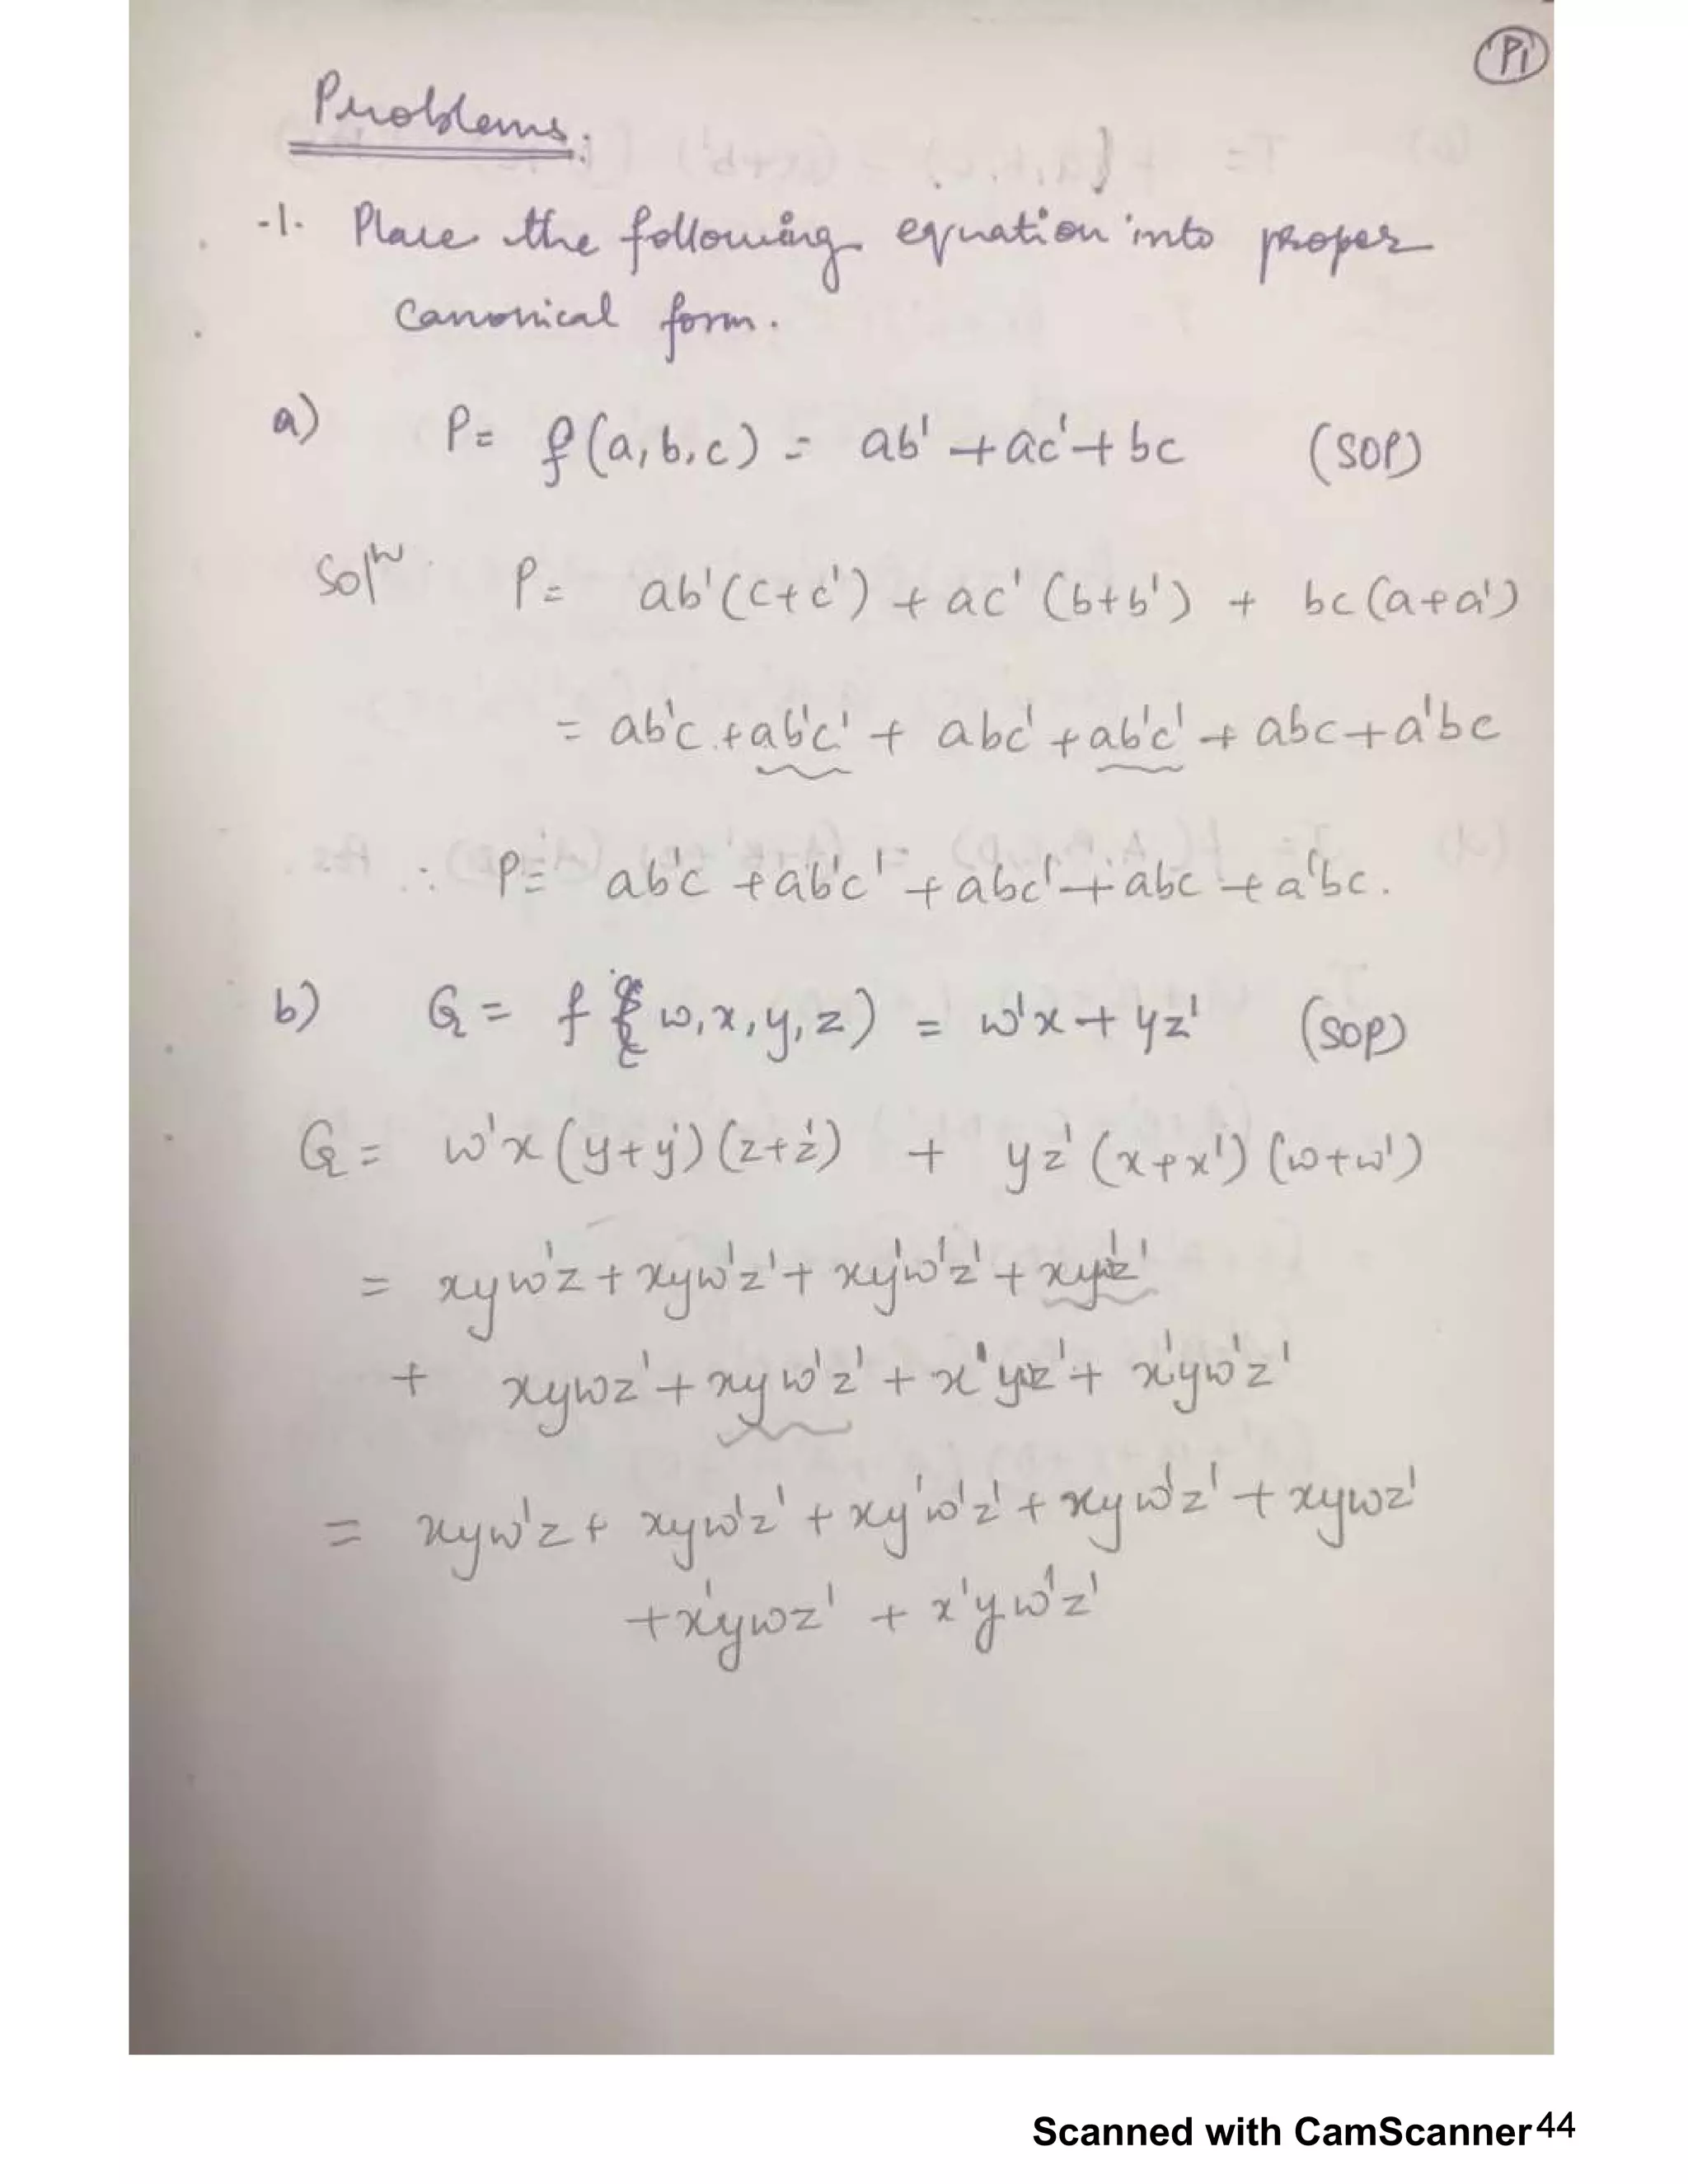 P1
Problems:
1. Place the following equation into proper
canonical form.
a) P = f(a,b,c) = ab' + ac' + bc (SOP)
Solⁿ P = ab'(c+c') + ac'(b+b') + bc(a+a')
= ab'c + ab'c' + abc' + ab'c' + abc + a'bc
∴ P = ab'c + ab'c' + abc' + abc + a'bc.
b) Q = f(w,x,y,z) = w'x + yz' (SOP)
Q = w'x(y+y')(z+z') + yz'(x+x')(w+w')
= xyw'z + xyw'z' + xy'w'z' +
+ xywz' + xyw'z' + x'ywz' + x'yw'z'
= xyw'z + xyw'z' + xy'w'z' + xyw'z' + xywz'
+ x'ywz' + x'yw'z'
Scanned with CamScanner44